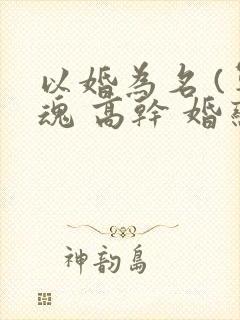 以婚為名(
魂 高幹 婚
神韵島